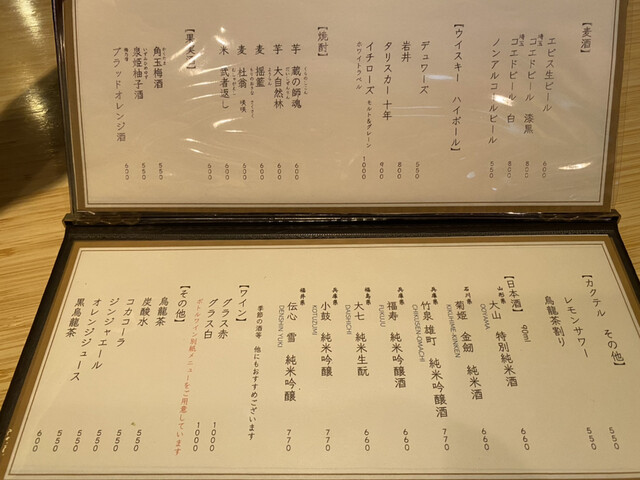 【麦酒】
エビス生ビール 600
埼玉 コエドビール 漆黒 800
埼玉 コエドビール 白 800
ノンアルコールビール 550
【ウイスキー ハイボール】
デュワーズ 550
岩井 800
タリスカー 十年 900
イチローズ モルト&グレーン 1000
ホワイトラベル
【焼酎】
芋 蔵の師魂 600
芋 大自然林 600
麦 揺籃 600
麦 杜翁 600
米 武者返し 600
【果実酒】
角玉梅酒 550
泉姫柚子酒 550
ブラッドオレンジ酒 600
【カクテル その他】
レモンサワー 550
烏龍茶割り 550
【日本酒】 90ml
山形県 大山 特別純米酒 660
OOYAMA
石川県 菊姫 金劔 純米酒 660
KIKUHIME-KINKEN
兵庫県 竹泉 雄町 純米吟醸酒 770
CHIKUSEN-OMACHI
兵庫県 福寿 純米吟醸酒 660
FUKUJU
福島県 大七 純米生酛 660
DAISHICHI
兵庫県 小鼓 純米吟醸 770
KOTUZUMI
福井県 伝心 雪 純米吟醸 770
DENSHIN YUKI
季節の酒等 他にもおすすめございます
【ワイン】
グラス赤 1000
グラス白 1000
ボトルワイン別紙メニューをご用意しています
【その他】
烏龍茶 550
炭酸水 550
コカコーラ 550
ジンジャエール 550
オレンジジュース 550
黒烏龍茶 600